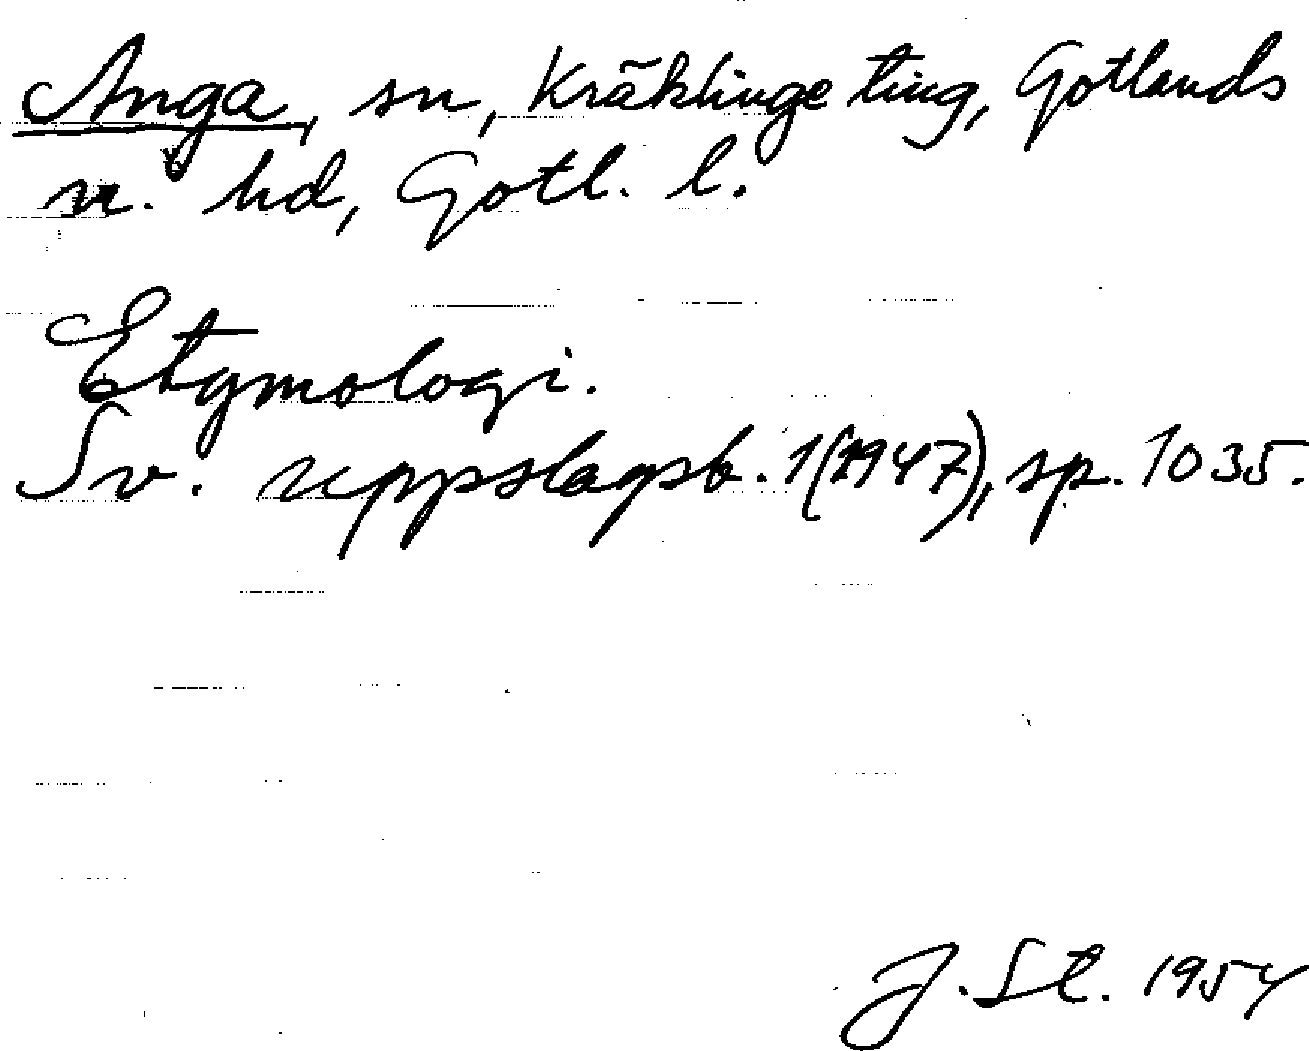 Anga, sn, Kräklinge ting, Gotlands
n. hd, Gotl. l.
Etymologi.
Sv. uppslagsb. 1(1947), sp. 1035.
J. St. 1954